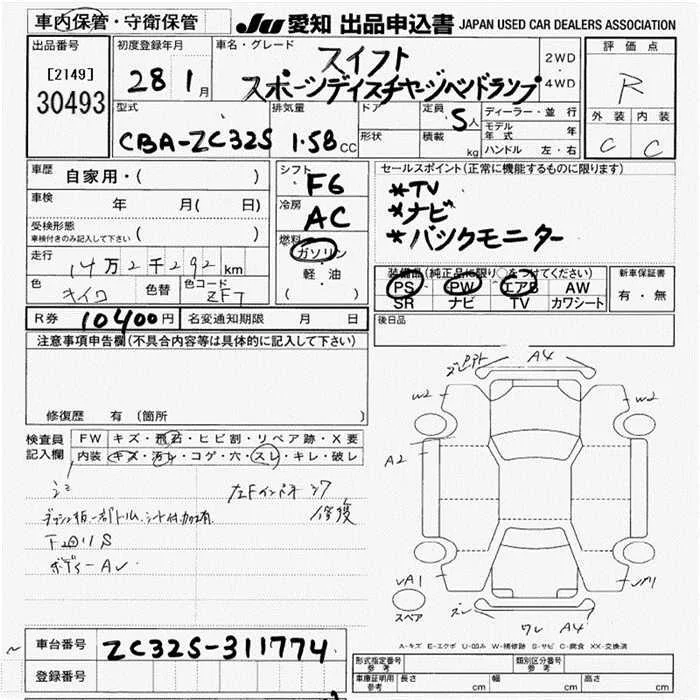 車内保管・守衛保管
JU 愛知 出品申込書 JAPAN USED CAR DEALERS ASSOCIATION
出品番号 初度登録年月 車名・グレード 評価点
[2149]
30493
28 1月
スイフト
スポーツディスチャージヘッドランプ
2WD
4WD
R
外装 内装
C C
型式 排気量 ドア 定員 5人 ディーラー・並行
CBA-ZC32S 1.58 CC
形状 積載 kg
モデル年式 年
ハンドル 左・右
車歴 自家用・( )
車検 年 月( 日)
受検形態 ( )
車検付きのみ記入して下さい
走行 14万2千292km
色 キイロ 色替 色コード ZF7
シフト
F6
冷房
AC
燃料
ガソリン
・
軽・油
( )
セールスポイント(正常に機能するものに限ります)
*TV
*ナビ
*バックモニター
装備品(純正品に限り○をつけてください) 新車保証書
PS PW エアB AW
SR ナビ TV カワシート
有・無
R券 10400円 名変通知期限 月 日
後日品
注意事項申告欄(不具合内容等は具体的に記入して下さい)
修復歴 有 (箇所 )
検査員
記入欄
FW キズ・飛石・ヒビ割・リペア跡・X要
内装 キズ・汚レ・コゲ・穴・スレ・キレ・破レ
左Fインパネ
修復
ボディーAレ
A4
W2 W2
A2
スペア
A4
A-キズ E-エクボ U-凹み W-補修跡 S-サビ C-腐食 XX-交換済
車台番号 ZC32S-311774
登録番号
形式指定番号 参考
類別区分番号 参考
車庫証明用 参考 長さ cm 幅 cm 高さ cm